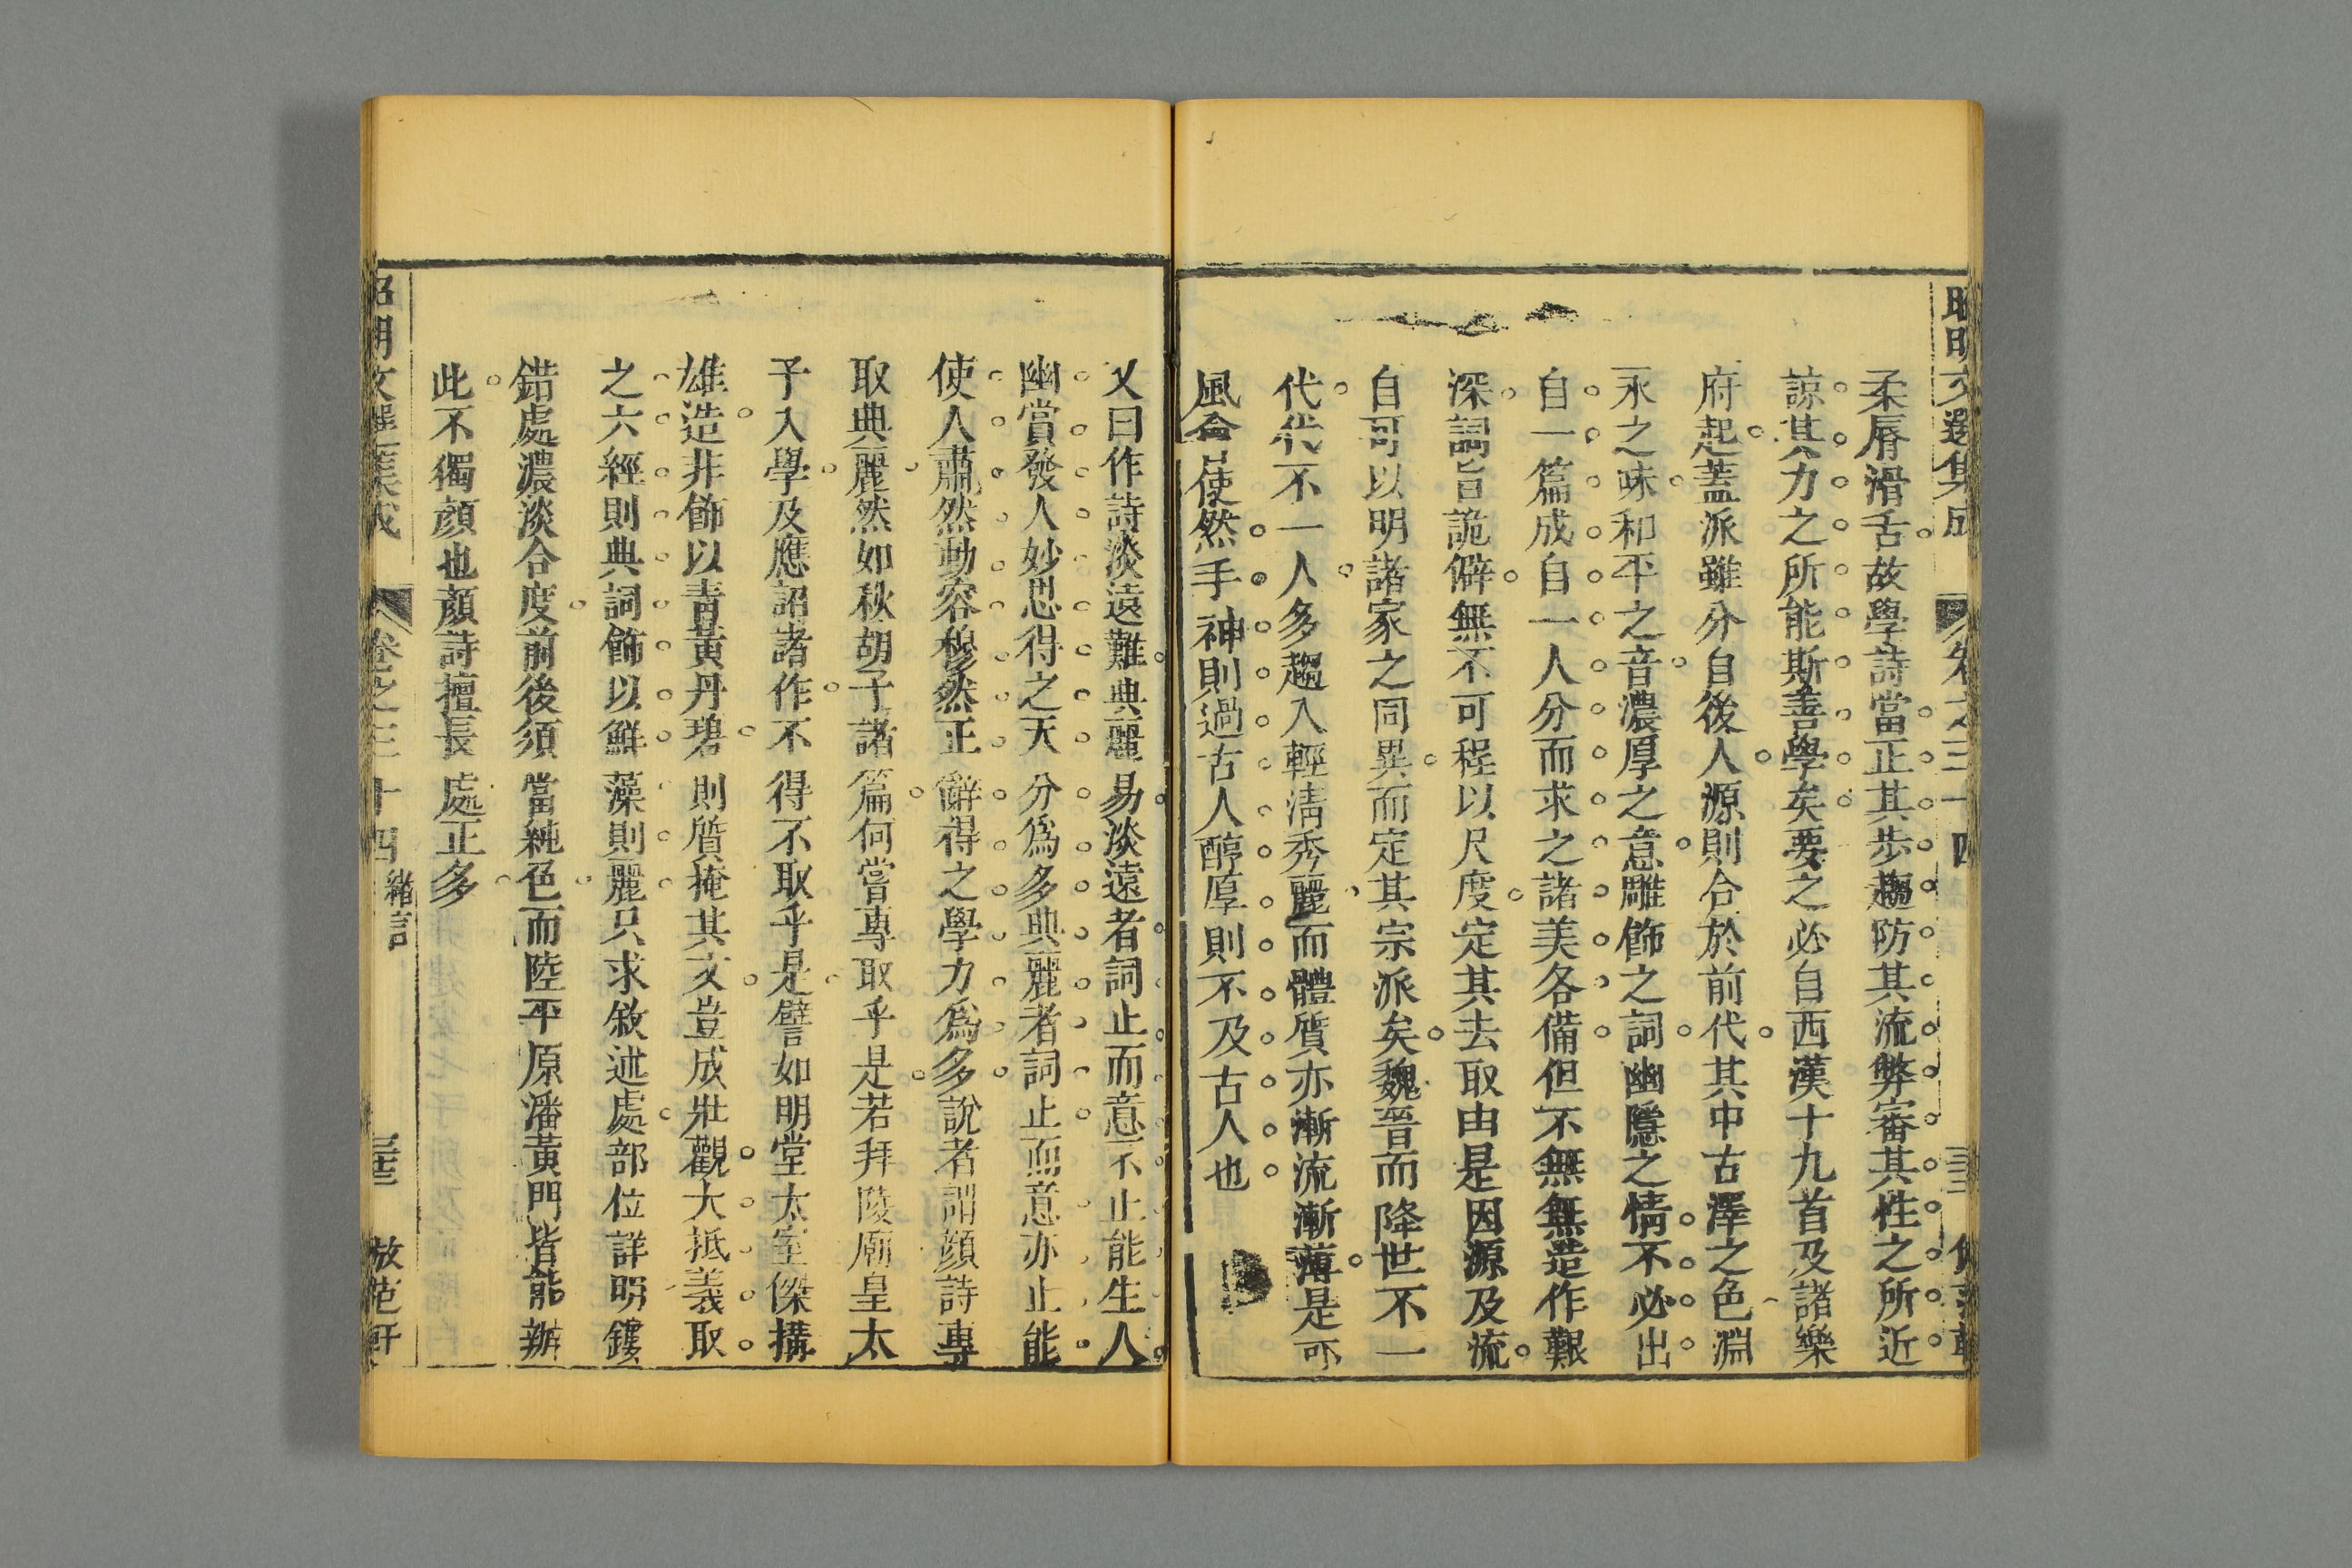 昭明文選集成 卷之三十四
柔脣滑舌故學詩當正其步趨防其流弊審其性之所近
諒其力之所能斯善學矣要之必自西漢十九首及諸樂
府起蓋派雖分自後人源則合於前代其中古澤之色淵
永之味和平之音濃厚之意雕飾之詞幽隱之情不必出
自一篇成自一人分而求之諸美各備但不無無造作艱
深詞旨詭僻無不可程以尺度定其去取由是因源及流
自可以明諸家之同異而定其宗派矣魏晉而降世不一
代代不一人多趨入輕淸秀麗而體質亦漸流漸薄是亦
風會使然手神則過古人醇厚則不及古人也
又曰作詩淡遠難典麗易淡遠者詞止而意不止能生人
幽賞發人妙思得之天分爲多典麗者詞止而意亦止能
使人肅然動容穆然正辭得之學力爲多說者謂顔詩專
取典麗然如秋胡子諸篇何嘗專取乎是若拜陵廟皇太
子入學及應詔諸作不得不取乎是譬如明堂太室傑搆
雄造非飾以靑黃丹碧則質掩其文豈成壯觀大抵義取
之六經則典詞飾以鮮藻則麗只求敘述處部位詳明鏤
錯處濃淡合度前後須當純色而陸平原潘黃門皆能辦
此不獨顔也顔詩擅長處正多
昭明文選集成 卷之三十四 緒言 倣范軒